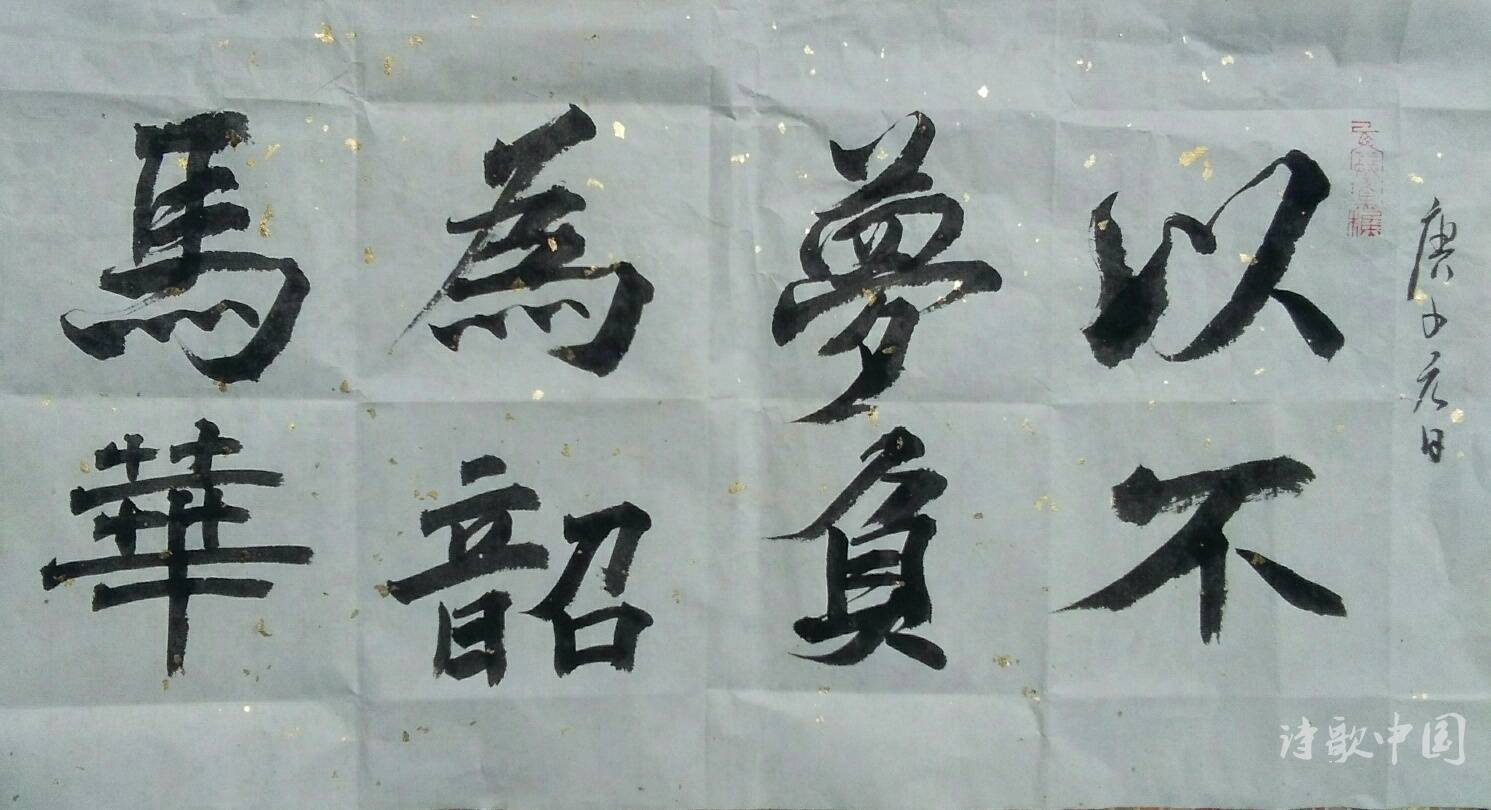 庚子元日
以夢為馬
不負韶華
诗歌中国